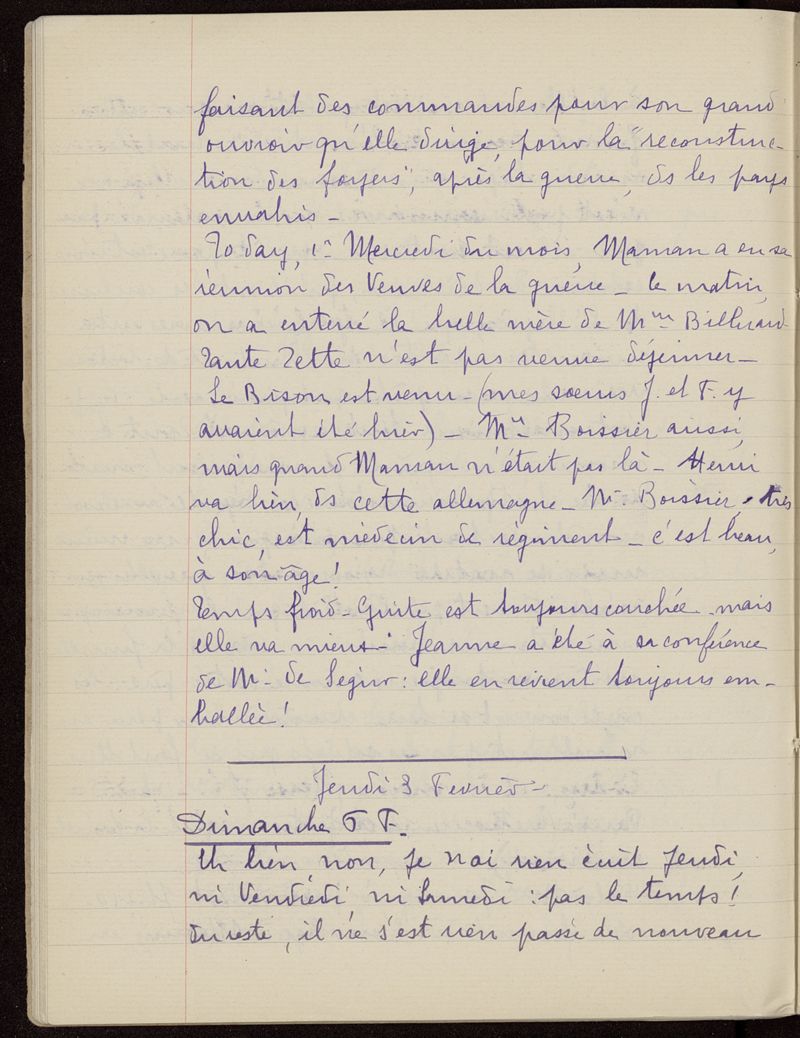 faisant des commandes pour son grand
ouvroir qu'elle dirige, pour la "reconstruc-
tion des foyers", après la guerre, ds les pays
envahis -
To day, 1er Mercredi du mois, Maman a eu sa
réunion des Veuves de la guerre - le matin,
on a enterré la belle mère de Mme
Tante Zette n'est pas venue déjeuner -
Le Bison est venu - (mes soeurs J. et F. y
avaient été hier) - Mr Boissier aussi,
mais grand Maman n'était pas là - Henri
va bien, ds cette allemagne - Mr. Boissier, très
chic, est médecin de régiment - c'est beau,
à son âge!
Temps froid - Guite est toujours couchée - mais
elle va mieux - Jeanne a été à sa conférence
de Mr. de Segur : elle en revient toujours em-
ballée!
Jeudi 3 Fevrier -
Dimanche 6 F.
Eh bien non, je n'ai rien écrit Jeudi,
ni Vendredi ni Samedi : pas le temps!
du reste, il ne s'est rien passé de nouveau